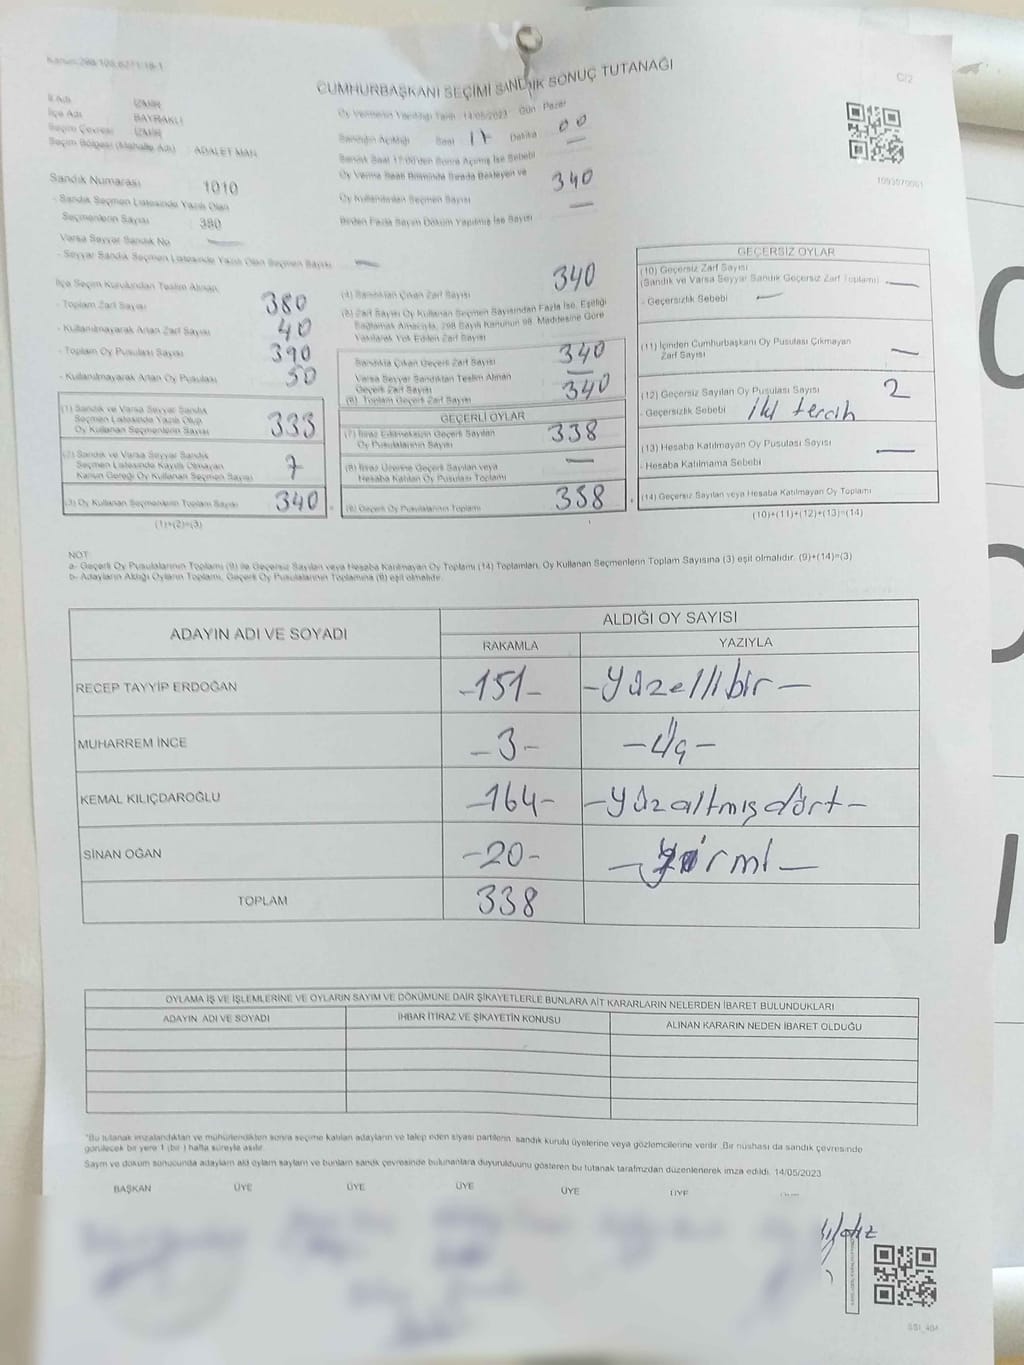 CUMHURBAŞKANI SEÇİMİ SANDIK SONUÇ TUTANAĞI
C/2
İl Adı İZMİR
İlçe Adı BAYRAKLI
Seçim Çevresi İZMİR
Seçim Bölgesi (Mahalle Adı) ADALET MAH.
Oy Vermenin Yapıldığı Tarih 14/05/2023 Gün Pazar
Sandığın Açıldığı Saat 17 Dakika 00
Sandık Saat 17:00'den Sonra Açılmış İse Sebebi —
Oy Verme Saati Bitiminde Sırada Bekleyen ve
Oy Kullandırılan Seçmen Sayısı 340
Birden Fazla Sayım Döküm Yapılmış İse Sayısı —
Sandık Numarası 1010
- Sandık Seçmen Listesinde Yazılı Olan
Seçmenlerin Sayısı 380
Varsa Seyyar Sandık No —
- Seyyar Sandık Seçmen Listesinde Yazılı Olan Seçmen Sayısı —
İlçe Seçim Kurulundan Teslim Alınan
- Toplam Zarf Sayısı 380
- Kullanılmayarak Artan Zarf Sayısı 40
- Toplam Oy Pusulası Sayısı 390
- Kullanılmayarak Artan Oy Pusulası 50
(1) Sandık ve Varsa Seyyar Sandık
Seçmen Listesinde Yazılı Olup
Oy Kullanan Seçmenlerin Sayısı 333
(2) Sandık ve Varsa Seyyar Sandık
Seçmen Listesinde Kayıtlı Olmayan
Kanun Gereği Oy Kullanan Seçmen Sayısı 7
(3) Oy Kullanan Seçmenlerin Toplam Sayısı 340
(1)+(2)=(3)
(4) Sandıktan Çıkan Zarf Sayısı 340
(5) Zarf Sayısı Oy Kullanan Seçmen Sayısından Fazla İse, Eşitliği
Sağlamak Amacıyla, 298 Sayılı Kanunun 98. Maddesine Göre
Yakılarak Yok Edilen Zarf Sayısı
Sandıkta Çıkan Geçerli Zarf Sayısı 340
Varsa Seyyar Sandıktan Teslim Alınan
Geçerli Zarf Sayısı —
(6) Toplam Geçerli Zarf Sayısı 340
GEÇERLİ OYLAR
(7) İtiraz Edilmeksizin Geçerli Sayılan
Oy Pusulalarının Sayısı 338
(8) İtiraz Üzerine Geçerli Sayılan veya
Hesaba Katılan Oy Pusulası Toplamı —
(9) Geçerli Oy Pusulalarının Toplamı 338
GEÇERSİZ OYLAR
(10) Geçersiz Zarf Sayısı
(Sandık ve Varsa Seyyar Sandık Geçersiz Zarf Toplamı) —
- Geçersizlik Sebebi —
(11) İçinden Cumhurbaşkanı Oy Pusulası Çıkmayan
Zarf Sayısı —
(12) Geçersiz Sayılan Oy Pusulası Sayısı 2
- Geçersizlik Sebebi iki tercih
(13) Hesaba Katılmayan Oy Pusulası Sayısı —
- Hesaba Katılmama Sebebi
(14) Geçersiz Sayılan veya Hesaba Katılmayan Oy Toplamı
(10)+(11)+(12)+(13)=(14)
NOT:
a- Geçerli Oy Pusulalarının Toplamı (9) ile Geçersiz Sayılan veya Hesaba Katılmayan Oy Toplamı (14) Toplamları, Oy Kullanan Seçmenlerin Toplam Sayısına (3) eşit olmalıdır. (9)+(14)=(3)
b- Adayların Aldığı Oyların Toplamı, Geçerli Oy Pusulalarının Toplamına (9) eşit olmalıdır.
ADAYIN ADI VE SOYADI
ALDIĞI OY SAYISI
RAKAMLA YAZIYLA
RECEP TAYYİP ERDOĞAN -151- -yüzellibir-
MUHARREM İNCE -3- -üç-
KEMAL KILIÇDAROĞLU -164- -yüzaltmışdört-
SİNAN OĞAN -20- -yirmi-
TOPLAM 338
OYLAMA İŞ VE İŞLEMLERİNE VE OYLARIN SAYIM VE DÖKÜMÜNE DAİR ŞİKAYETLERLE BUNLARA AİT KARARLARIN NELERDEN İBARET BULUNDUKLARI
ADAYIN ADI VE SOYADI İHBAR İTİRAZ VE ŞİKAYETİN KONUSU ALINAN KARARIN NEDEN İBARET OLDUĞU
"Bu tutanak imzalandıktan ve mühürlendikten sonra seçime katılan adayların ve talep eden siyasi partilerin sandık kurulu üyelerine veya gözlemcilerine verilir. Bir nüshası da sandık çevresinde
görülecek bir yere 1 (bir) hafta süreyle asılır.
BAŞKAN ÜYE ÜYE ÜYE ÜYE ÜYE